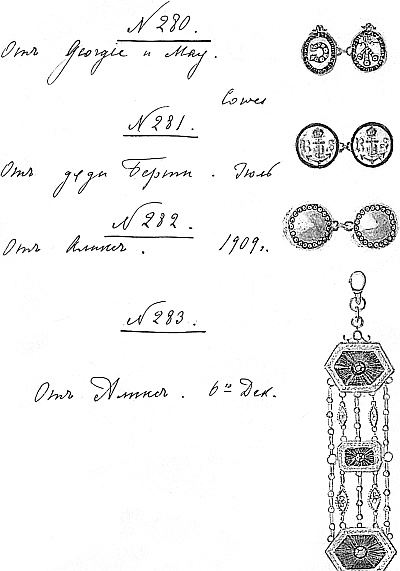 N 280.
Отъ Georgie и May.
Cowes
N 281.
Отъ дяди Берти. Іюль
N 282.
Отъ Аликсъ. 1909г.
N 283.
Отъ Аликсъ. 6го Дек.